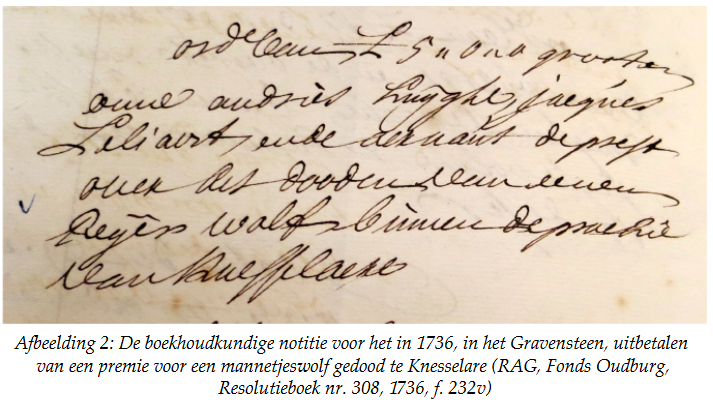 ordre van £ 5 " 0 " 0 grooten
omme andries Luÿghe, jacques
Leliaert, ende
over het dooden van eenen
wolf binnen de prochie
van Knesselaere
Afbeelding 2: De boekhoudkundige notitie voor het in 1736, in het Gravensteen, uitbetalen
van een premie voor een mannetjeswolf gedood te Knesselare (RAG, Fonds Oudburg,
Resolutieboek nr. 308, 1736, f. 232v)